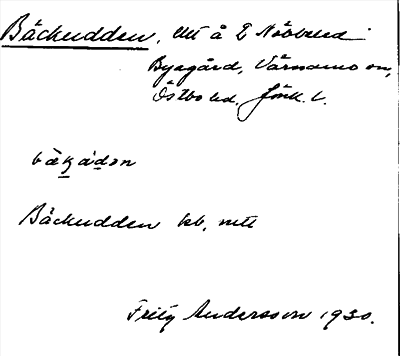 Bäckudden, litt å 2 Nöbbeled
Byagård, Värnamo sn,
Östbo hd. Jönk. l.
bäkudən
Bäckudden bb, nitt
Fritz Andersson 1930.